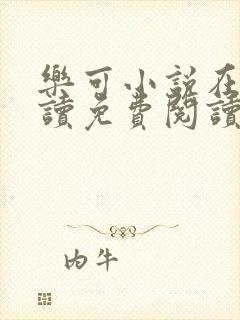 樂可小說在
讀免費閱讀
内牛